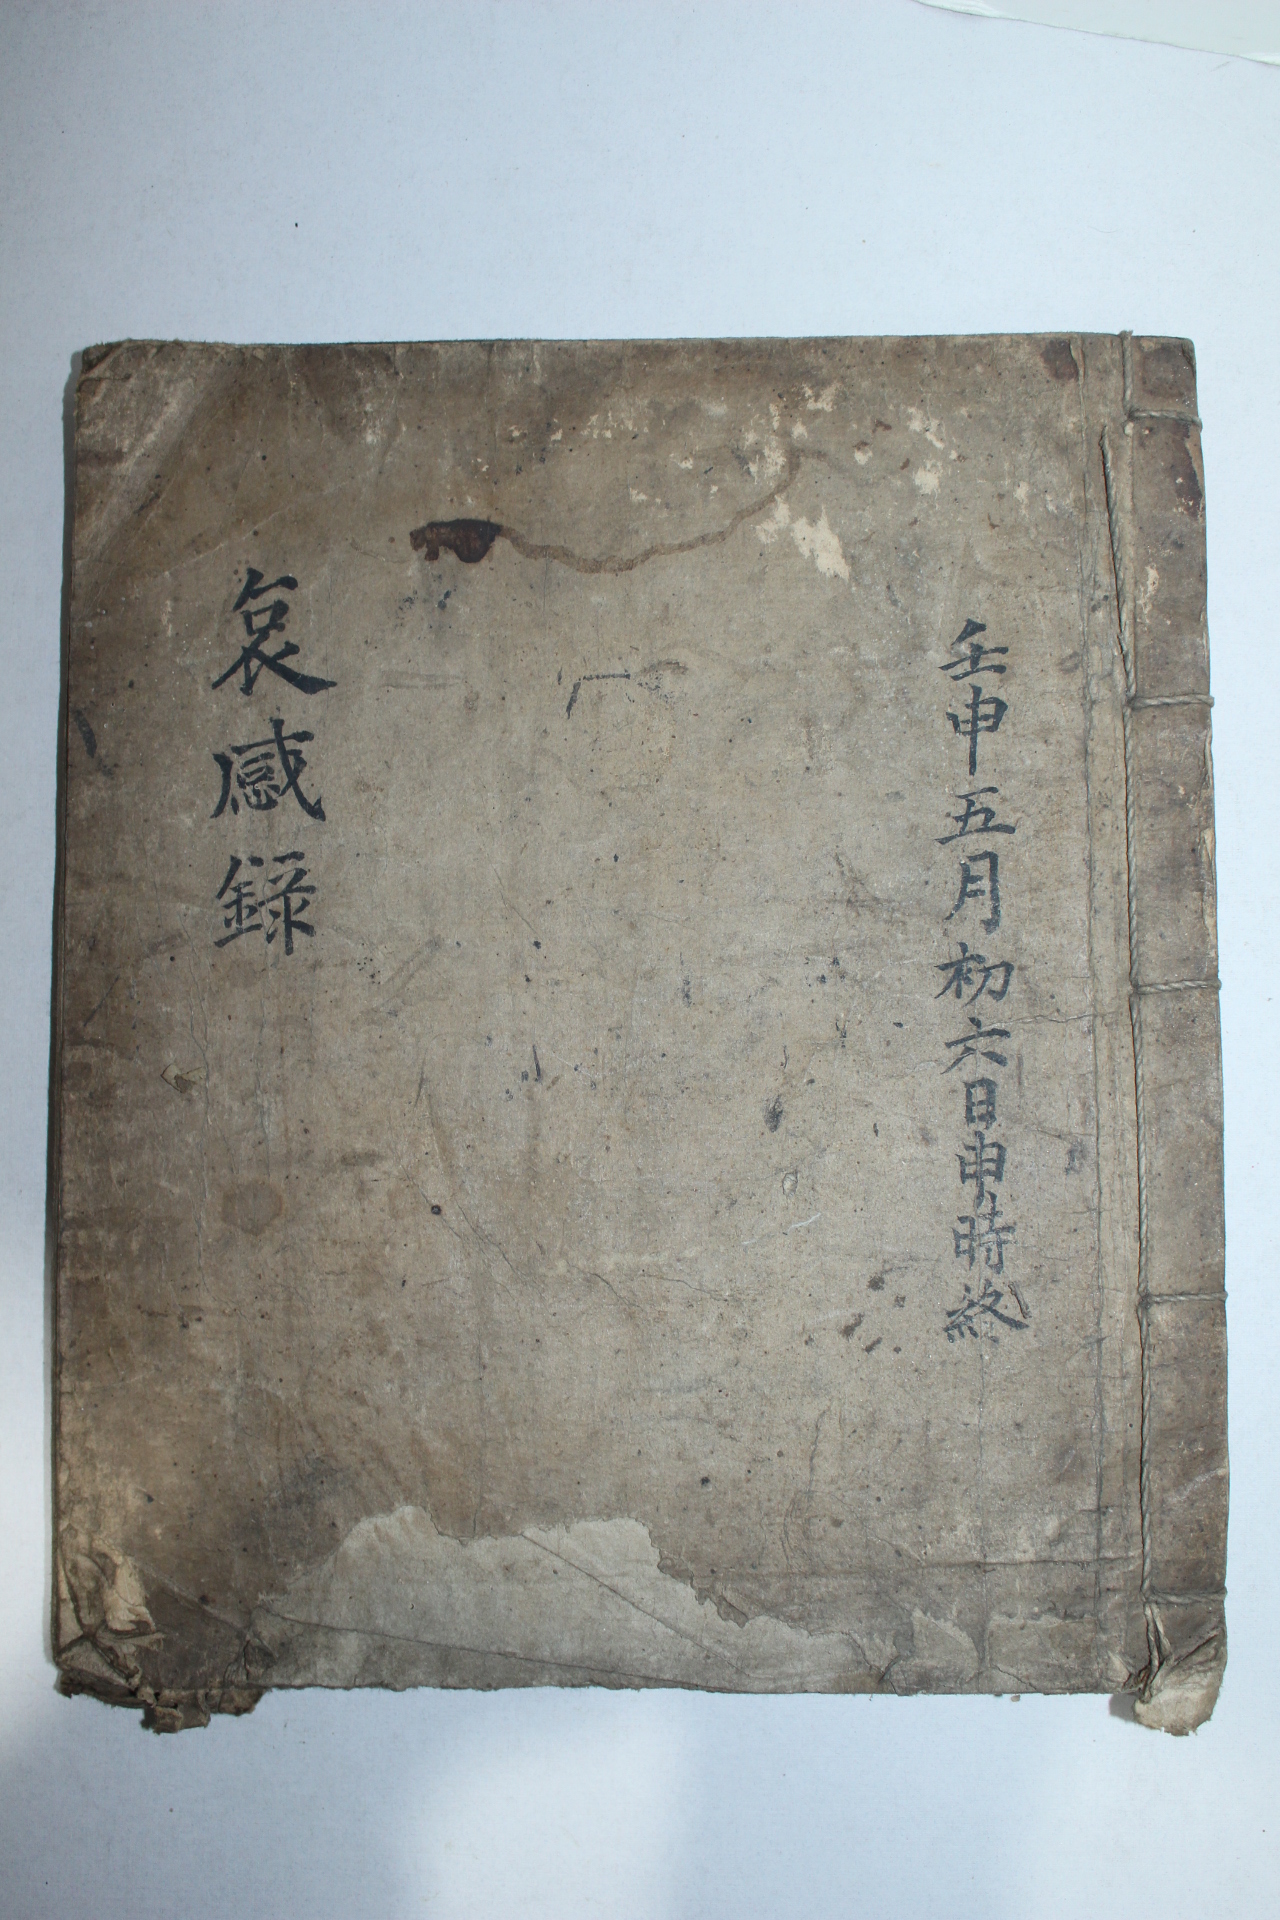 壬申五月初六日申時終
哀感錄